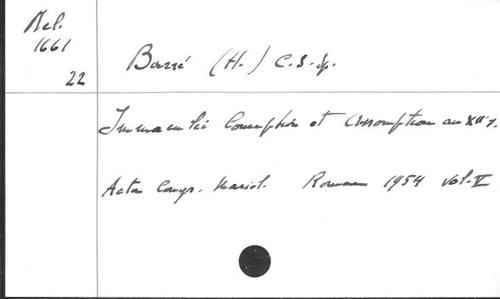 Rel.
1661
22
Barré (H.) C.S.Sp.
Immaculée Conception et Assomption au XIIe s.
Acta Congr. Mariol. Romae 1954 Vol. V